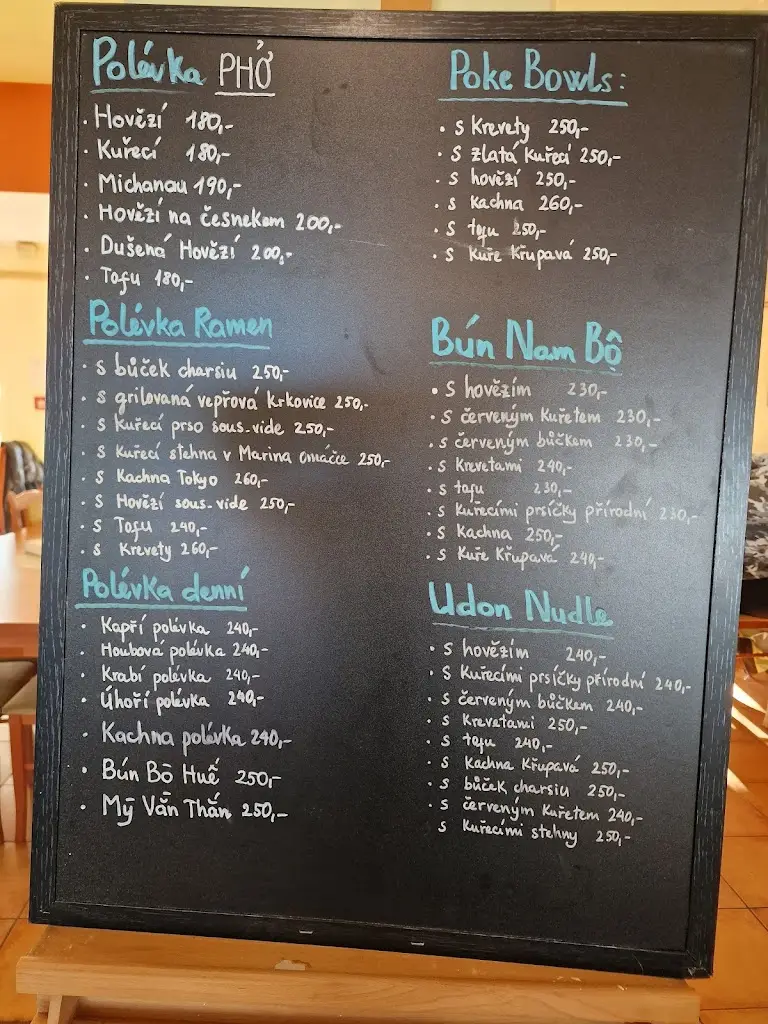 Polévka PHỞ
· Hovězí 180,-
· Kuřecí 180,-
· Michanau 190,-
· Hovězí na česnekem 200,-
· Dušená Hovězí 200,-
· Tofu 180,-
Polévka Ramen
· s bůček charsiu 250,-
· s grilovaná vepřová Krkovice 250,-
· s Kuřecí prso sous-vide 250,-
· s Kuřecí stehna v Marina omáčce 250,-
· s Kachna Tokyo 260,-
· s Hovězí sous-vide 250,-
· s Tofu 240,-
· s Krevety 260,-
Polévka denní
· Kapří polévka 240,-
· Houbová polévka 240,-
· Krabí polévka 240,-
· Úhoří polévka 240,-
· Kachna polévka 240,-
· Bún Bò Huế 250,-
· Mỹ Vằn Thắn 250,-
Poke Bowls:
· s Krevety 250,-
· s zlatá kuřecí 250,-
· s hovězí 250,-
· s kachna 260,-
· s tofu 250,-
· s Kuře Křupavá 250,-
Bún Nam Bộ
· s hovězím 230,-
· s červeným Kuřetem 230,-
· s červeným bůčkem 230,-
· s Krevetami 240,-
· s tofu 230,-
· s Kuřecími prsíčky přírodní 230,-
· s Kachna 250,-
· s Kuře Křupavá 240,-
Udon Nudle
· s hovězím 240,-
· s Kuřecími prsíčky přírodní 240,-
· s červeným bůčkem 240,-
· s Krevetami 250,-
· s tofu 240,-
· s Kachna Křupavá 250,-
· s bůček charsiu 250,-
· s červeným Kuřetem 240,-
· s Kuřecími stehny 250,-